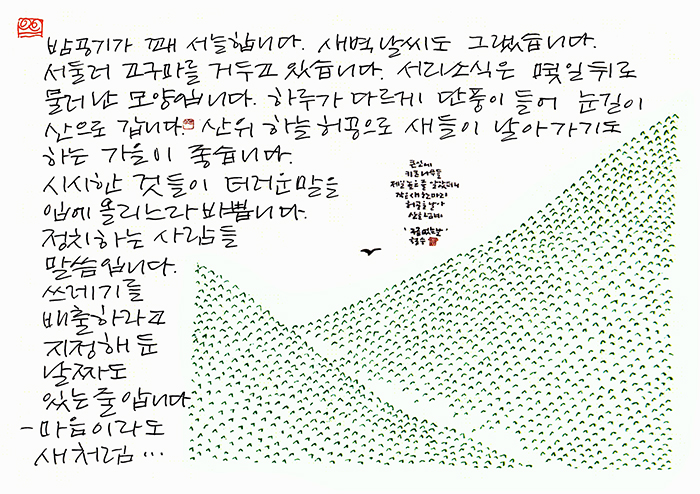 밤공기가 꽤 서늘합니다. 새벽날씨도 그렇습니다.
서둘러 고구마를 거두고 있습니다. 서리소식은 몇일 뒤로
물러난 모양입니다. 하루가 다르게 단풍이 들어 눈길이
산으로 갑니다. 산위 하늘 허공으로 새들이 날아가기도
하는 가을이 좋습니다.
시시한 것들이 더러운말을
입에 올리느라 바쁩니다.
정치하는 사람들
말씀입니다.
쓰레기를
배출하라고
지정해 둔
날짜도
있는줄 압니다
- 마음이라도
새처럼...
큰산에
키큰나무들
제일 높은줄 알았더니
작은새 한마리
허공을 날아
산을 넘네
철수